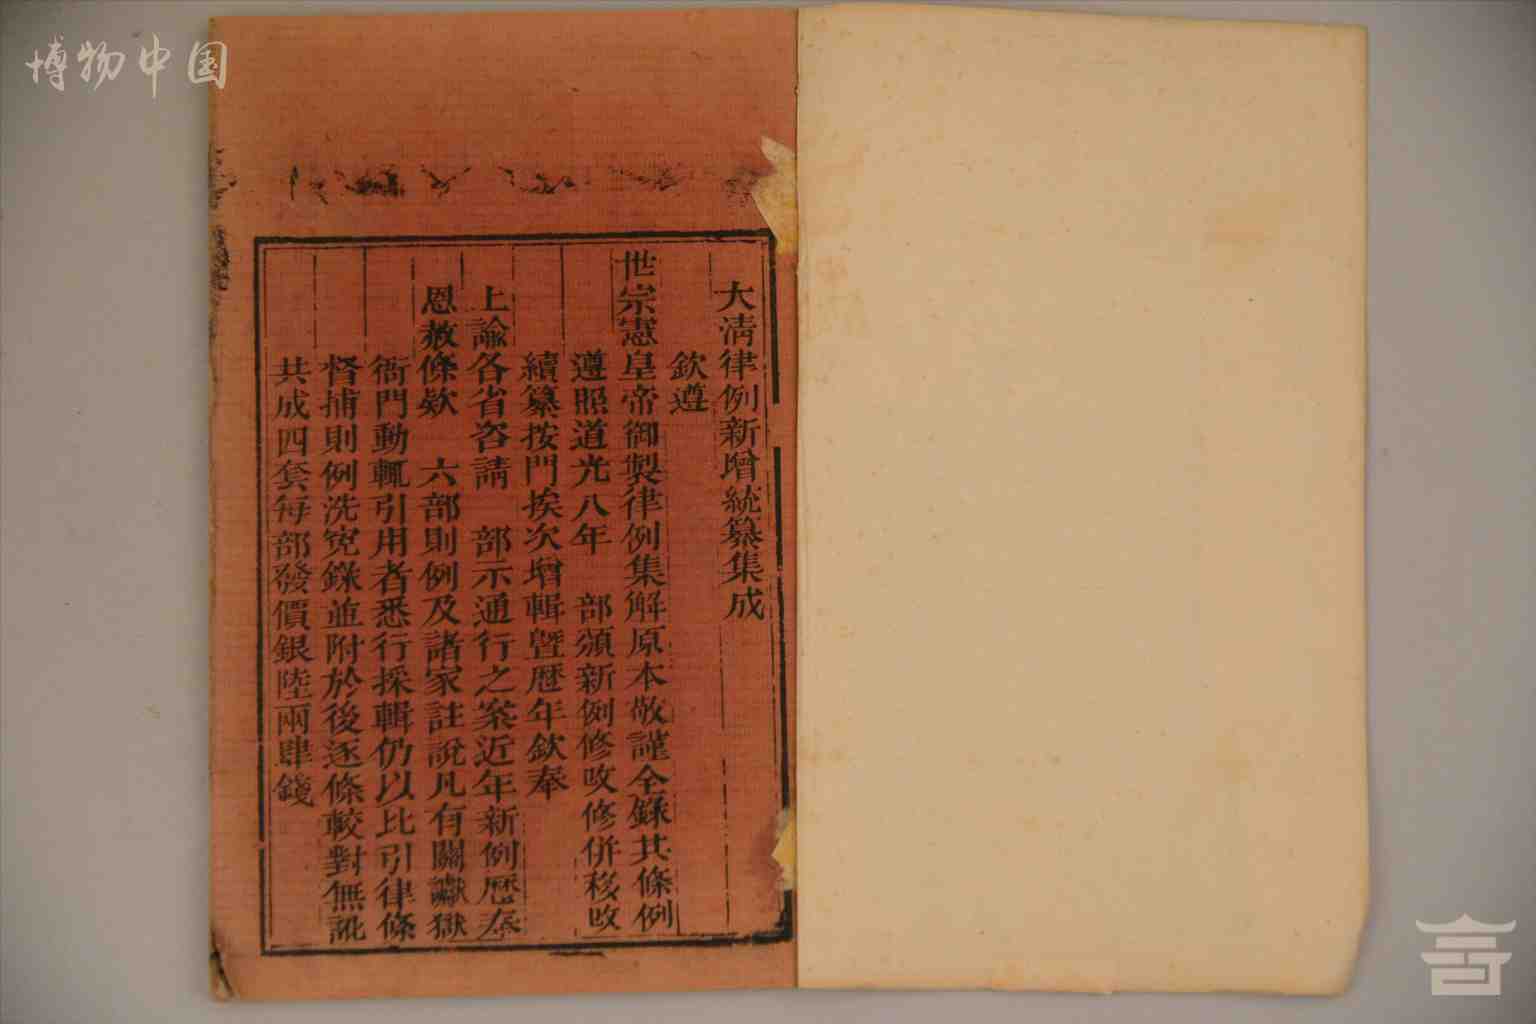 博物中国
大清律例新增統纂集成
欽遵
世宗憲皇帝御製律例集解原本敬謹全錄其條例
遵照道光八年 部頒新例修改修併移改
續纂按門挨次增輯曁歷年欽奉
上諭各省咨請 部示通行之案近年新例歷奉
恩赦條欵 六部則例及諸家註說凡有關讞獄
衙門動輒引用者悉行採輯仍以比引律條
督捕則例洗寃錄並附於後逐條較對無訛
共成四套每部發價銀陸兩肆錢